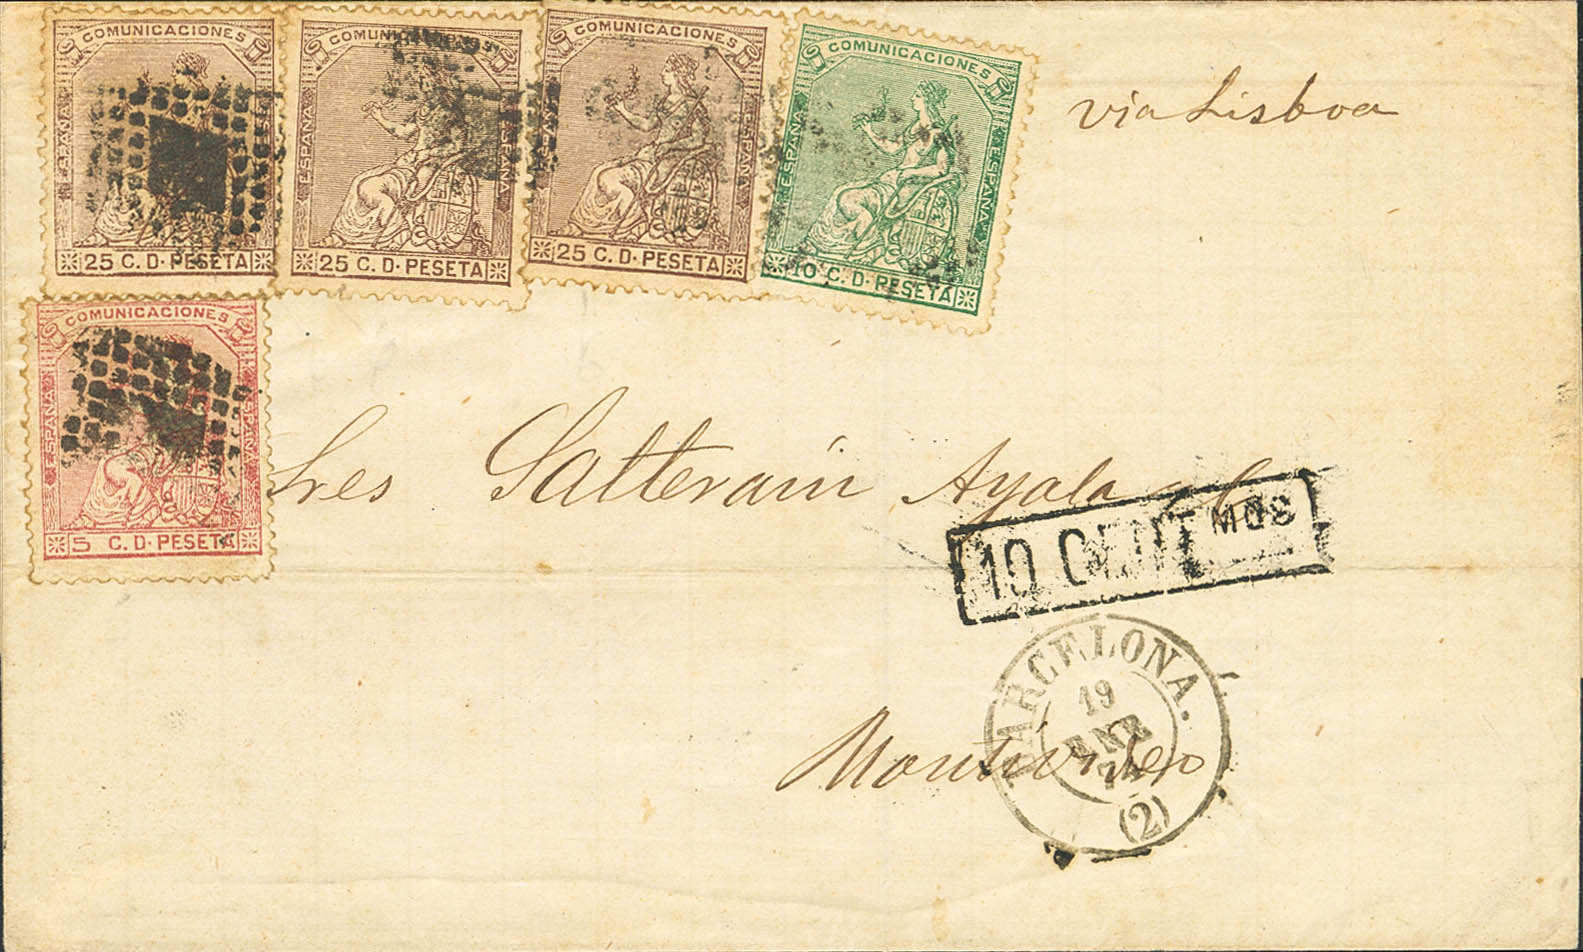 COMUNICACIONES
ESPAÑA ESPAÑA
25 C. D. PESETA
COMUNICACIONES
ESPAÑA ESPAÑA
25 C. D. PESETA
COMUNICACIONES
ESPAÑA ESPAÑA
25 C. D. PESETA
COMUNICACIONES
ESPAÑA ESPAÑA
10 C. D. PESETA
via Lisboa
COMUNICACIONES
ESPAÑA ESPAÑA
5 C. D. PESETA
Sres Satterain Ayala y C
10 CENTMOS
BARCELONA.
19
ENE
74
(2)
Montevideo